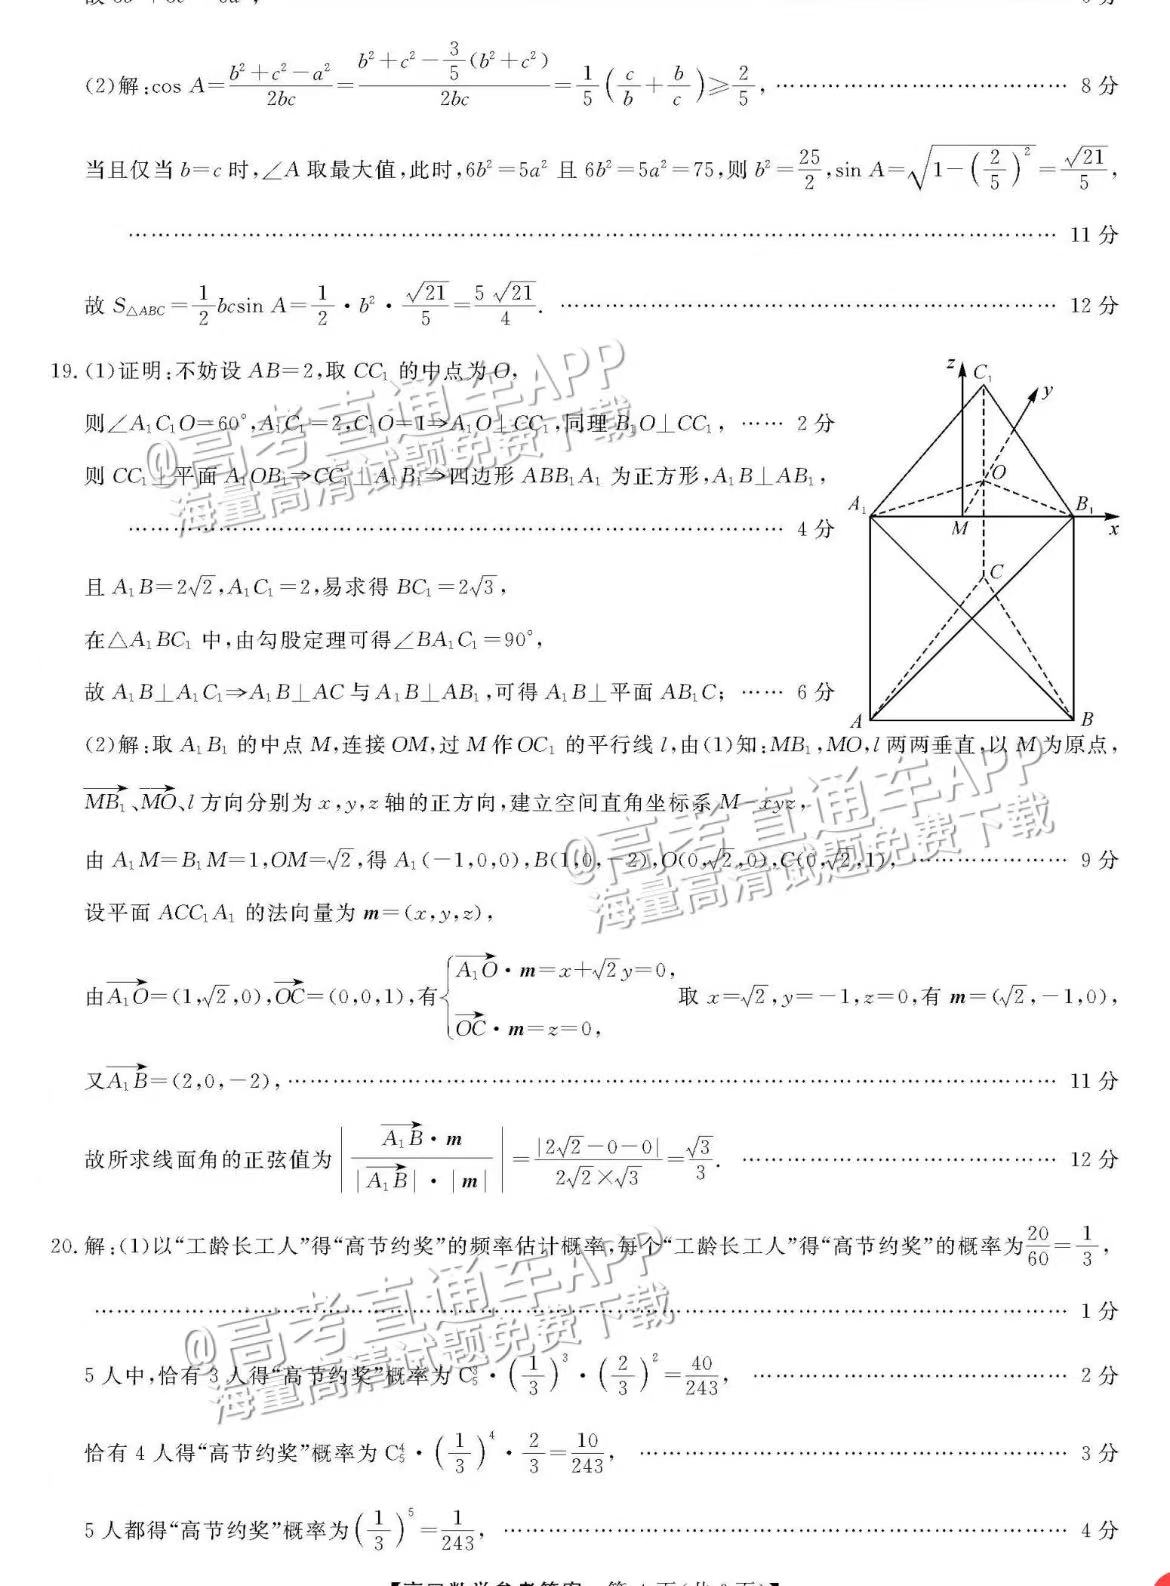 (2)解:cos A=(b²+c²−a²)/(2bc)=(b²+c²−(3/5)(b²+c²))/(2bc)=(1/5)(c/b+b/c)⩾2/5, …… 8 分
当且仅当 b=c 时,∠A 取最大值,此时,6b²=5a² 且 6b²=5a²=75,则 b²=25/2,sin A=√(1−(2/5)²)=√21/5,
…… 11 分
故 S△ABC=(1/2)bcsin A=(1/2)·b²·√21/5=5√21/4. …… 12 分
19.(1)证明:不妨设 AB=2,取 CC₁ 的中点为 O,
则∠A₁C₁O=60°,A₁C₁=2,C₁O=1⇒A₁O⊥CC₁,同理 B₁O⊥CC₁, …… 2 分
则 CC₁⊥平面 A₁OB₁⇒CC₁⊥A₁B₁⇒四边形 ABB₁A₁ 为正方形,A₁B⊥AB₁,
…… 4 分
且 A₁B=2√2,A₁C₁=2,易求得 BC₁=2√3,
在△A₁BC₁ 中,由勾股定理可得∠BA₁C₁=90°,
故 A₁B⊥A₁C₁⇒A₁B⊥AC 与 A₁B⊥AB₁,可得 A₁B⊥平面 AB₁C; …… 6 分
z
C₁
y
O
A₁
B₁
M
x
C
A
B
(2)解:取 A₁B₁ 的中点 M,连接 OM,过 M 作 OC₁ 的平行线 l,由(1)知:MB₁,MO,l 两两垂直,以 M 为原点,
MB₁→、MO→、l 方向分别为 x,y,z 轴的正方向,建立空间直角坐标系 M−xyz,
由 A₁M=B₁M=1,OM=√2,得 A₁(−1,0,0),B(1,0,−2),O(0,√2,0),C(0,√2,1), …… 9 分
设平面 ACC₁A₁ 的法向量为 m=(x,y,z),
由A₁O→=(1,√2,0),OC→=(0,0,1),有{A₁O→·m=x+√2y=0, OC→·m=z=0, 取 x=√2,y=−1,z=0,有 m=(√2,−1,0),
又A₁B→=(2,0,−2), …… 11 分
故所求线面角的正弦值为|A₁B→·m/(|A₁B→|·|m|)|=|2√2−0−0|/(2√2×√3)=√3/3. …… 12 分
20.解:(1)以“工龄长工人”得“高节约奖”的频率估计概率,每个“工龄长工人”得“高节约奖”的概率为20/60=1/3,
…… 1 分
5 人中,恰有 3 人得“高节约奖”概率为 C₅³·(1/3)³·(2/3)²=40/243, …… 2 分
恰有 4 人得“高节约奖”概率为 C₅⁴·(1/3)⁴·2/3=10/243, …… 3 分
5 人都得“高节约奖”概率为(1/3)⁵=1/243, …… 4 分
@高考直通车APP
海量高清试题免费下载
@高考直通车APP
海量高清试题免费下载
@高考直通车APP
海量高清试题免费下载